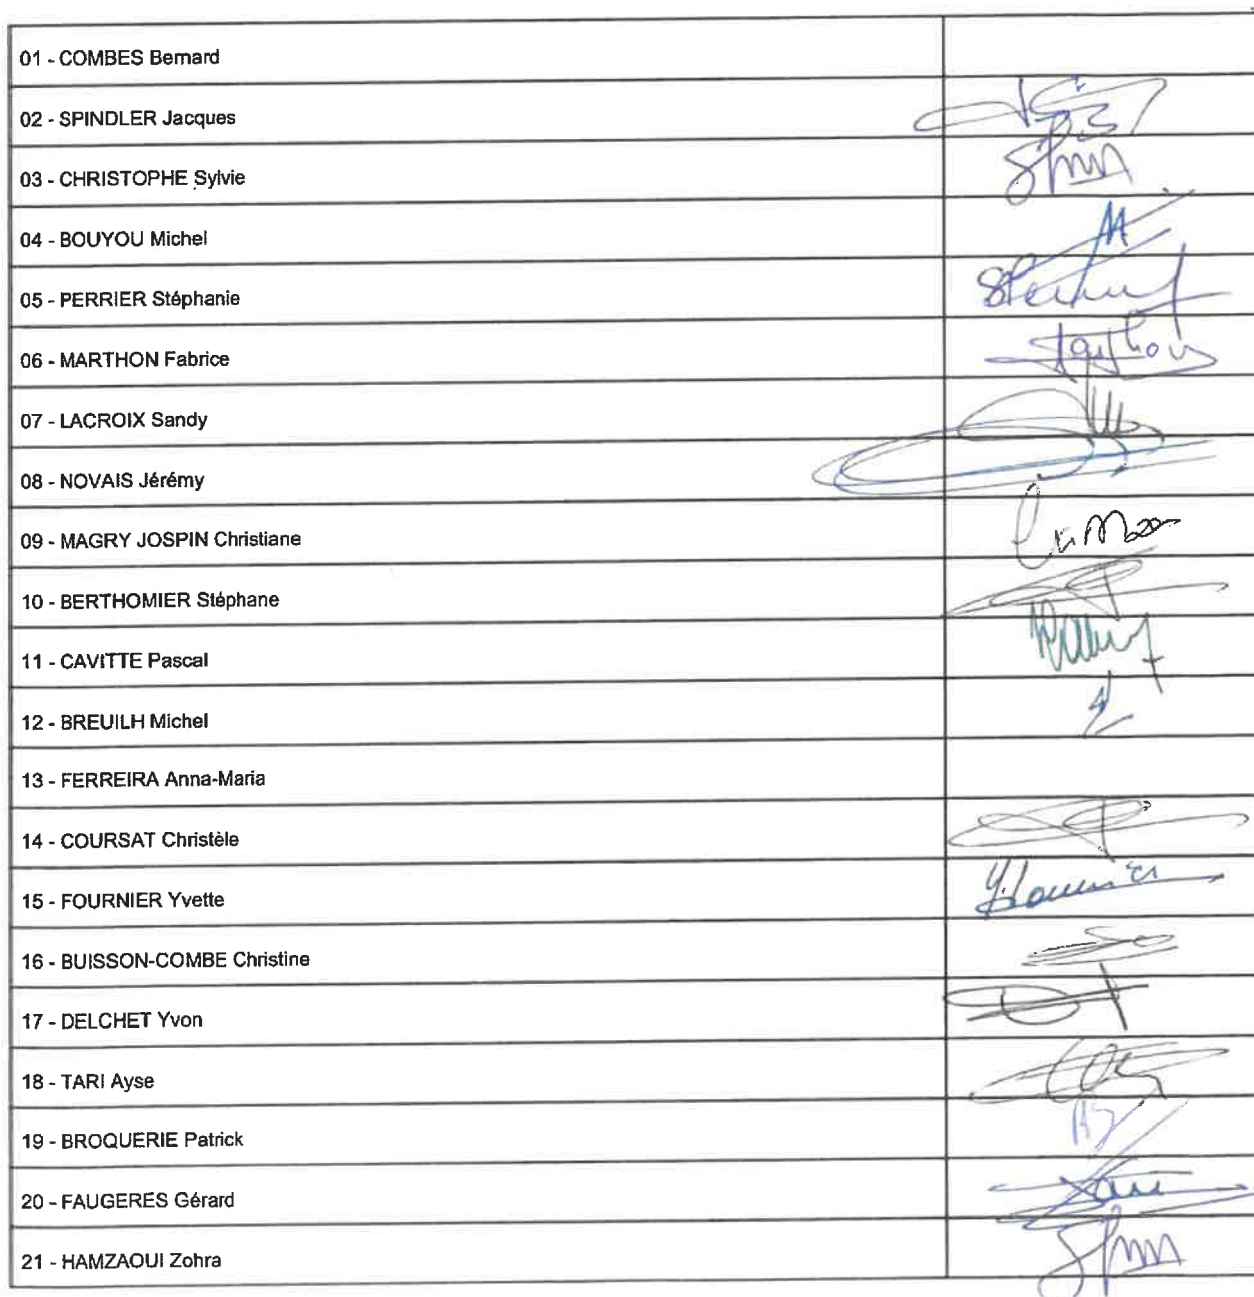 01 - COMBES Bernard
02 - SPINDLER Jacques
03 - CHRISTOPHE Sylvie
04 - BOUYOU Michel
05 - PERRIER Stéphanie
06 - MARTHON Fabrice
07 - LACROIX Sandy
08 - NOVAIS Jérémy
09 - MAGRY JOSPIN Christiane
10 - BERTHOMIER Stéphane
11 - CAVITTE Pascal
12 - BREUILH Michel
13 - FERREIRA Anna-Maria
14 - COURSAT Christèle
15 - FOURNIER Yvette
16 - BUISSON-COMBE Christine
17 - DELCHET Yvon
18 - TARI Ayse
19 - BROQUERIE Patrick
20 - FAUGERES Gérard
21 - HAMZAOUI Zohra